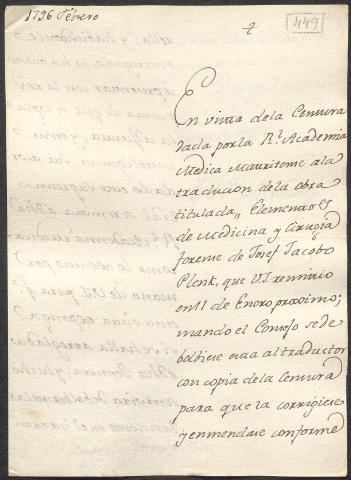 1796 Febrero
449
En vista dela Censura
dada por la Rl. Academia
Medica Matritense ala
traducion de la obra
titulada,, Elementos
de Medicina y Cirugia
forense de Josef Jacobo
Plenk, que V.I. remitio
en 11 de Enero proximo;
mandó el Consejo se de
bolbiese esta al traductor
con copia dela Censura
para que la corrigiese
y enmendase conforme